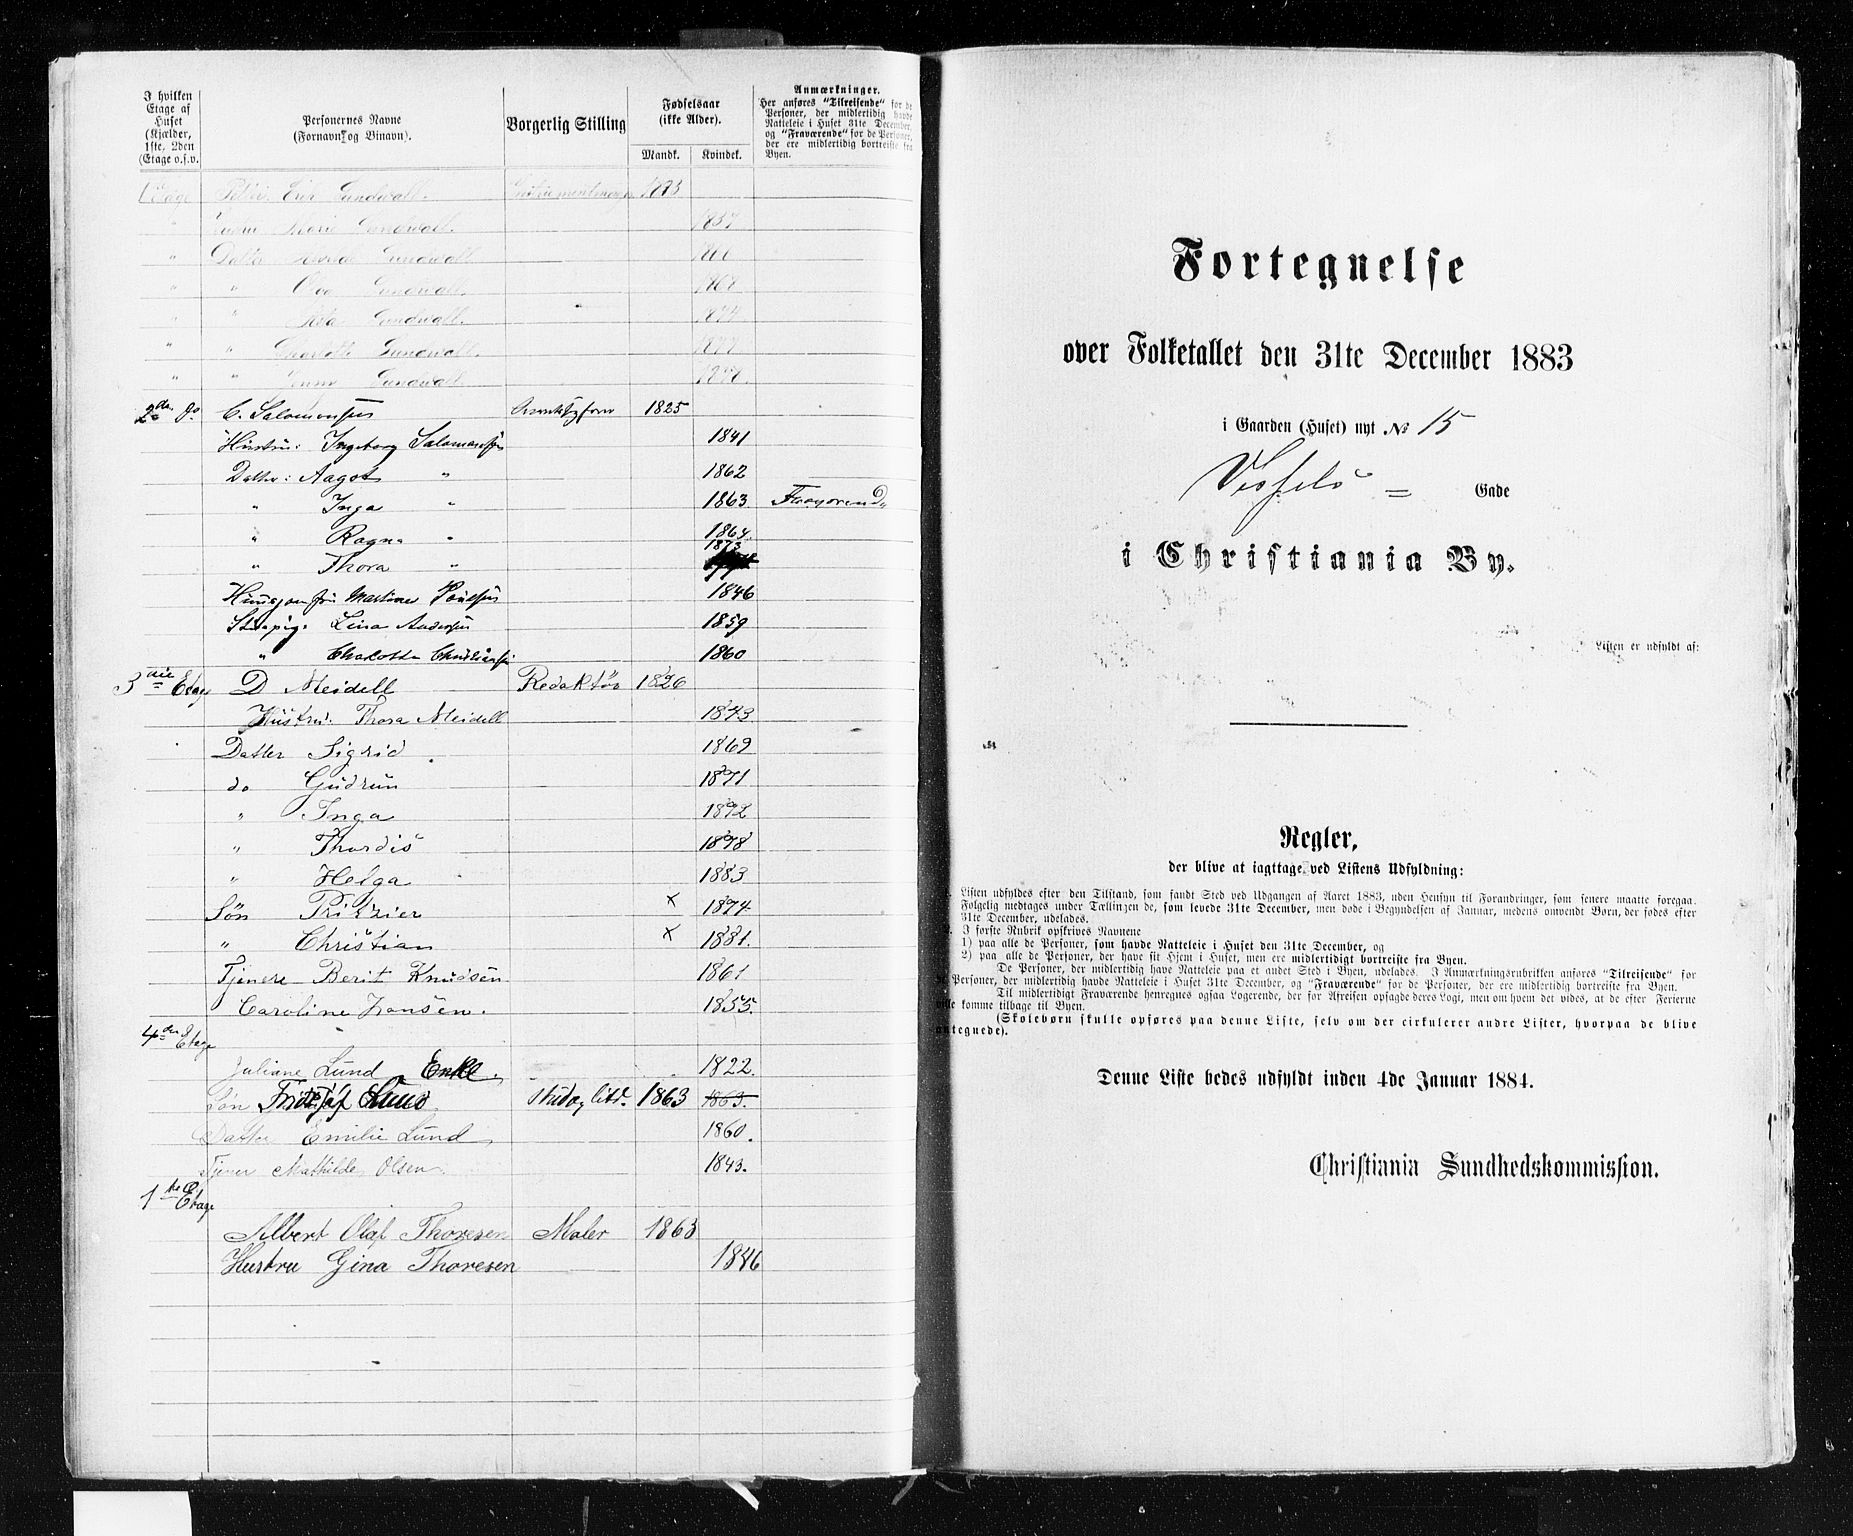 I hvilken
Etage af
Huset
(Kjælder,
1ste, 2den
Etage o.s.v.
Personernes Navne
(Fornavn og Binavn).
Borgerlig Stilling
Fødselsaar
(ikke Alder).
Mandk. Kvindek.
Anmærkninger.
Her anføres "Tilreisende" for de
Personer, der midlertidig havde
Natteleie i Huset 31te December,
og "Fraværende" for de Personer,
der ere midlertidig bortreiste fra
Byen.
Etage Erik Sundwall
Marie Sundwall. 1837
" Datter Sundwall
" " Sundwall. 1868
" " Sundwall. 1874
" " Charlotte Sundwall. 1877
" " Jenny Sundwall
2den do C. Salomonsen 1825
Hustru: Ingeborg Salomonsen 1841
Datter: Aagot " 1862
" Inga " 1863 Fraværende
" Ragna " 1864
" Thora " 1873
Huusjomfru Martine Poulsen 1846
Stuepige Lina Andersen 1859
" Charlotte Christiansen 1860
3die Etage D Meidell Redaktør 1826
Hustru. Thora Meidell 1843
Datter Sigrid 1869
do Gudrun 1871
" Inga 1872
" Thordis 1878
" Helga 1883
Søn x 1874
" Christian x 1881.
Tjenere Berit Knudsen 1861
Caroline Hansen. 1855.
4de Etage
Juliane Lund Enke. 1822.
Søn Fridtjof Lund Stud. 1863 1863.
Datter Emilie Lund 1860.
Tjener Mathilde Olsen. 1843.
1ste Etage
Albert Olaf Thoresen Maler 1863
Hustru Gina Thoresen 1846
Fortegnelse
over Folketallet den 31te December 1883
i Gaarden (Huset) nyt No 15
Vessels = Gade
i Christiania By.
Listen er udfyldt af:
Regler,
der blive at iagttage ved Listens Udfyldning:
Listen udfyldes efter den Tilstand, som fandt Sted ved Udgangen af Aaret 1883, uden Hensyn til Forandringer, som senere maatte foregaa.
Følgelig medtages under Tællingen de, som levede 31te December, men døde i Begyndelsen af Januar, medens omvendt Børn, der fødes efter
31te December, udelades.
I første Rubrik opskrives Navnene
1) paa alle de Personer, som havde Natteleie i Huset den 31te December, og
2) paa alle de Personer, der have sit Hjem i Huset, men ere midlertidigt bortreiste fra Byen.
De Personer, der midlertidig have Natteleie paa et andet Sted i Byen, udelades. I Anmærkningsrubriken anføres "Tilreisende" for
Personer, der midlertidig havde Natteleie i Huset 31te December, og "Fraværende" for de Personer, der ere midlertidig bortreiste fra Byen.
Til midlertidigt Fraværende henregnes ogsaa Logerende, der før Afreisen opsagde deres Logi, men om hvem det vides, at de efter Ferierne
ville komme tilbage til Byen.
(Skolebørn skulle opføres paa denne Liste, selv om der cirkulerer andre Lister, hvorpaa de blive
antegnede).
Denne Liste bedes udfyldt inden 4de Januar 1884.
Christiania Sundhedskommission.